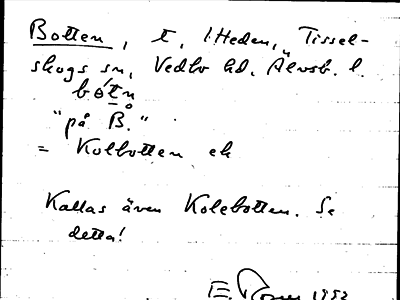 Botten, t, i Heden, Tissel-
skogs sn, Vedbo hd. Älvsb. l.
bótn
"på B."
= Kolbotten ek
Kallas även Kolebotten. Se
detta!
E. 1952